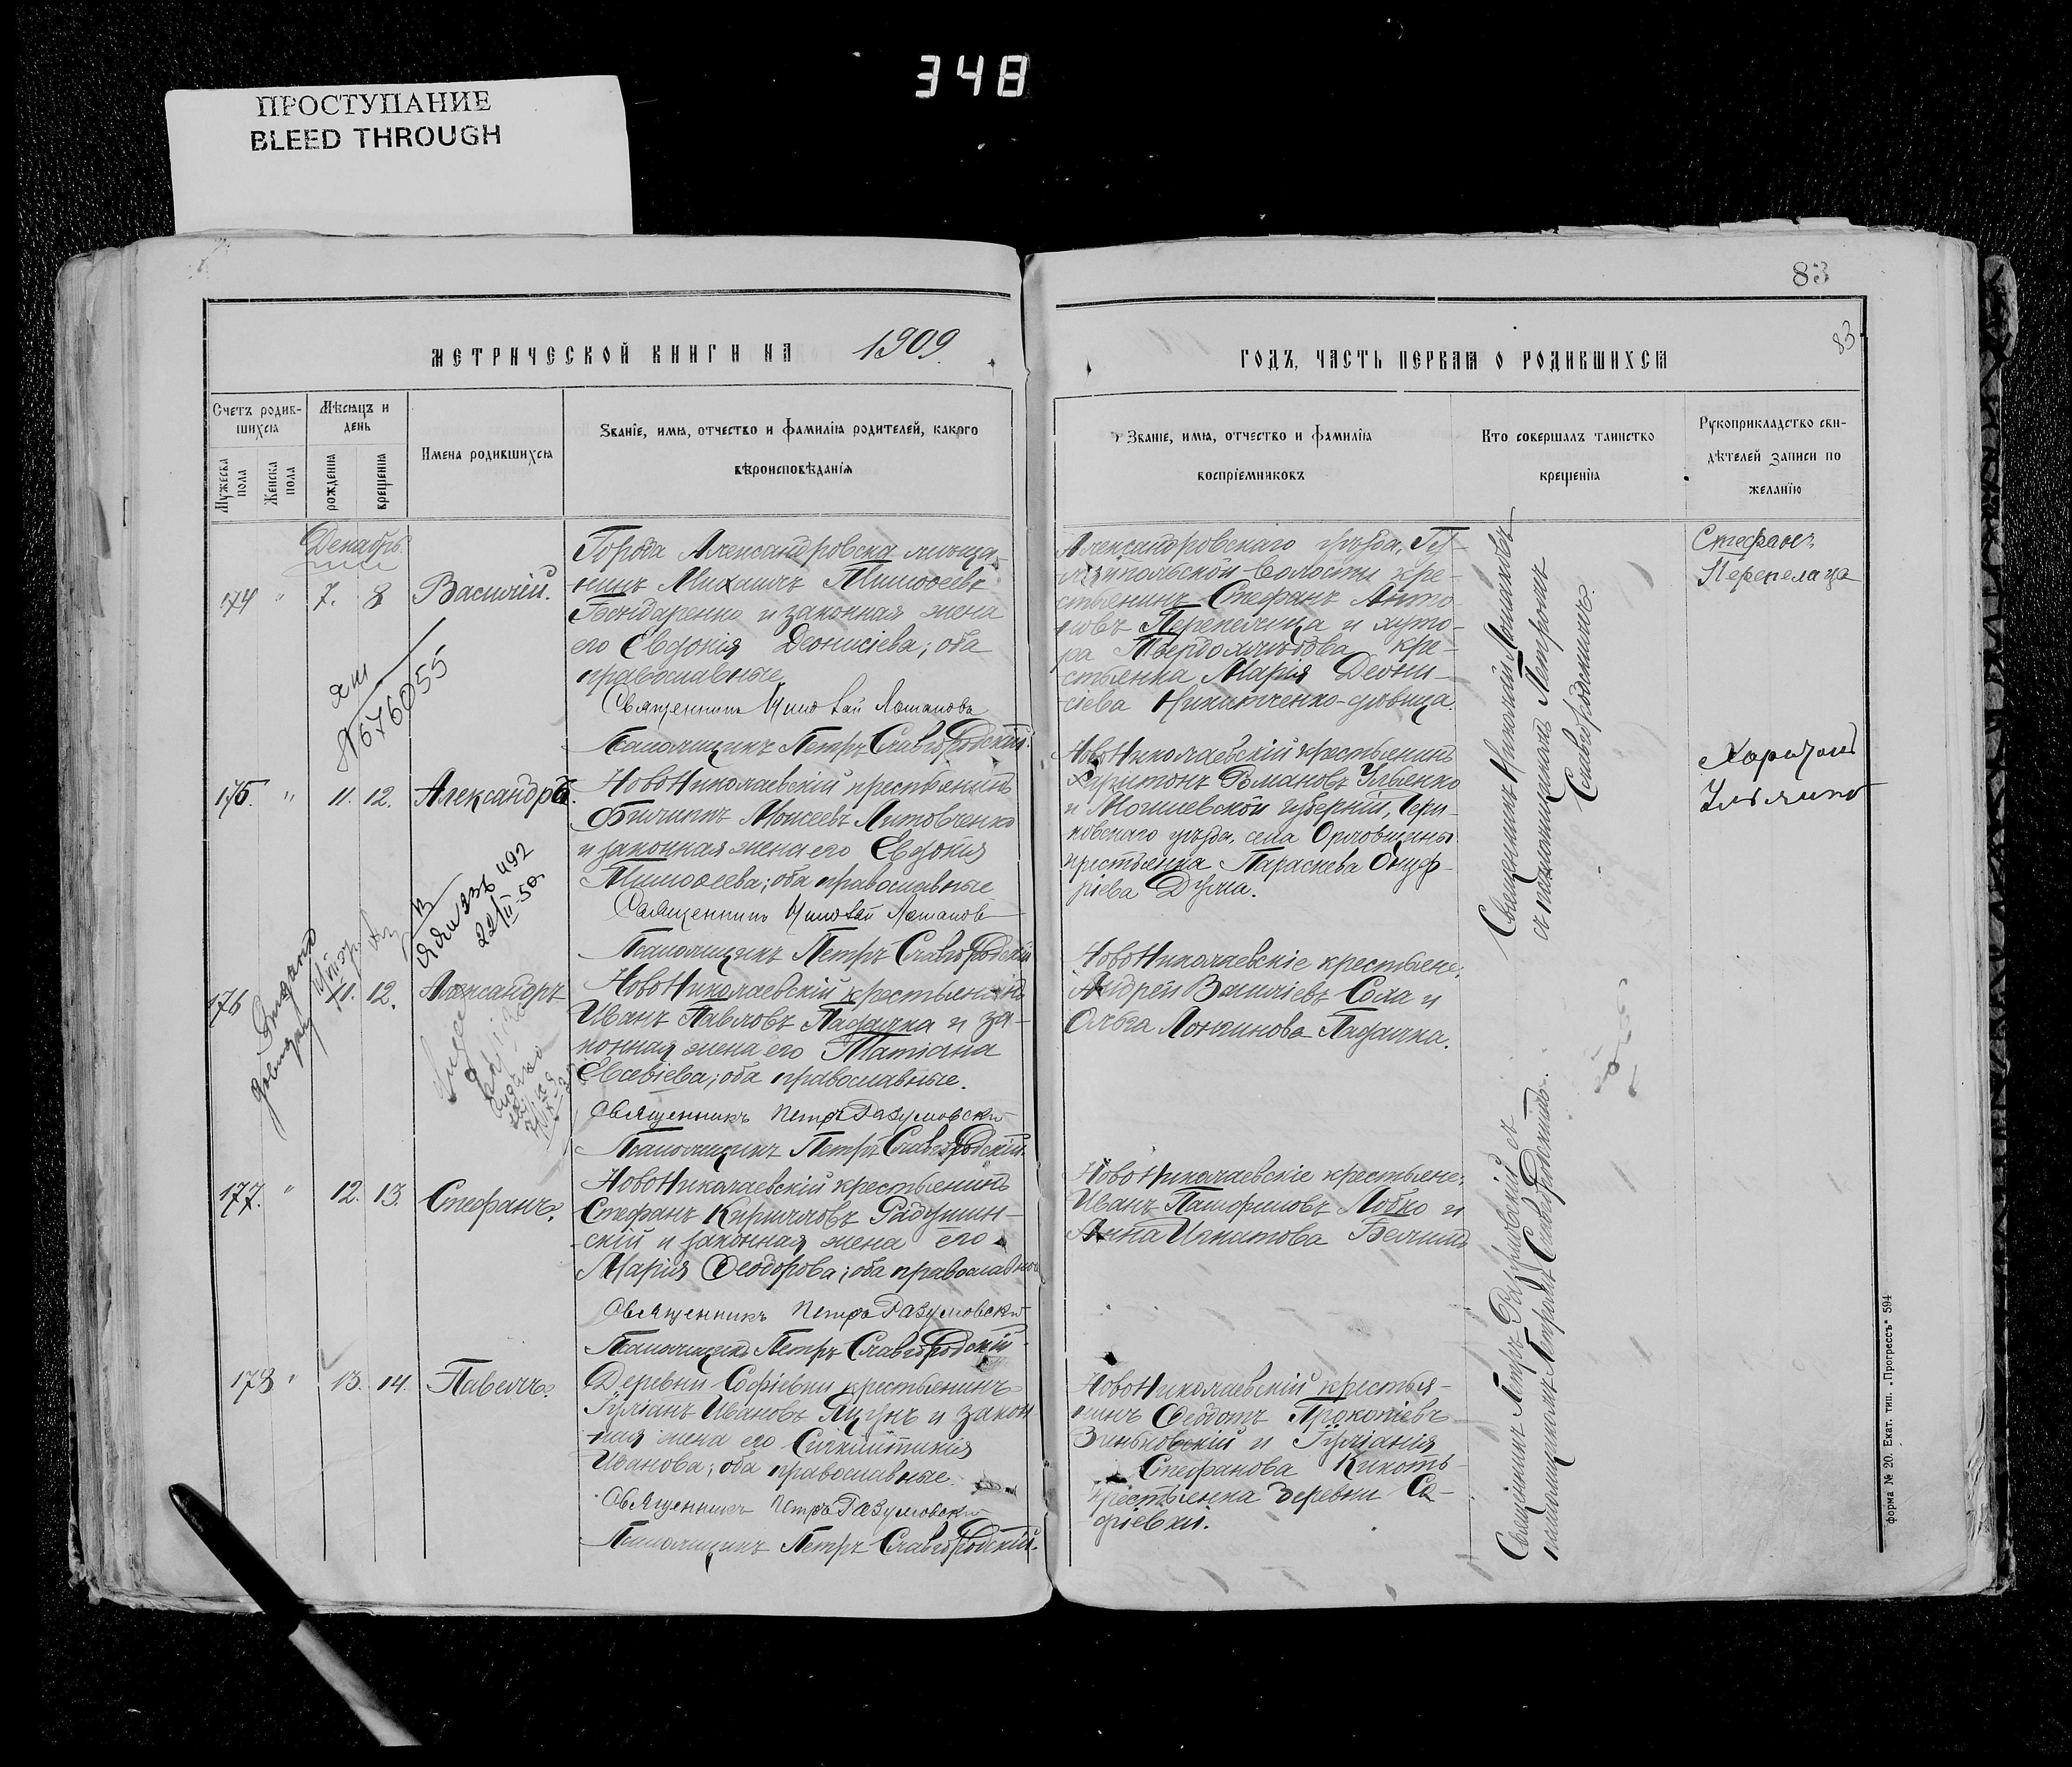 348
ПРОСТУПАНИЕ
BLEED THROUGH
83
83
МЕТРИЧЕСКОЙ КНИГИ НА 1909
ГОДЪ, ЧАСТЬ ПЕРВАЯ О РОДИВШИХСЯ
Счетъ родив-
шихся
Мужеска пола
Женска пола
Мѣсяцъ и
день
рожденія
крещенія
Имена родившихся
Званіе, имя, отчество и фамилія родителей, какого
вѣроисповѣданія
Званіе, имя, отчество и фамилія
воспріемниковъ
Кто совершалъ таинство
крещенія
Рукоприкладство сви-
дѣтелей записи по
желанію
Декабрь
174 " 7. 8 Василій.
Города Александровска мѣща-
нинъ Михаилъ Тимоѳеевъ
Бондаренко и законная жена
его Евдокія Діонисіева; оба
православные
Священникъ Николай Лошаковъ
Псаломщикъ Петръ Славгородскій.
Александровскаго уѣзда,
волости кре-
стьянинъ Стефанъ Анто-
новъ Перепелица и хуто-
ра Твердохлѣбова кре-
стьянка Марія Діони-
сіева Никитченко-дѣвица.
Священникъ Николай Лошаковъ
съ псаломщикомъ Петромъ
Славгородскимъ.
Стефанъ
Перепелица
ЯИ
№676055
175. " 11. 12. Александръ.
НовоНиколаевскій крестьянинъ
Филиппъ Моисеевъ Литовченко
и законная жена его Евдокія
Тимоѳеева; оба православные
Священникъ Николай Лошаковъ
Псаломщикъ Петръ Славгородскій
НовоНиколаевскій крестьянинъ
Харитонъ Романовъ Ульенко
и Могилевской губерніи, Чери-
ковскаго уѣзда, села Орловщины
крестьянка Параскева Онуф-
ріева Дуpна.
Харитонъ
492
22/II-50
176 11. 12. Александръ
НовоНиколаевскій крестьянинъ
Иванъ Павловъ Падалка и за-
конная жена его Татіана
Евсевіева; оба православные.
Священникъ Петръ Разумовскій
Псаломщикъ Петръ Славгородскій.
НовоНиколаевскіе крестьяне:
Андрей Василіевъ Сола и
Ольга Лонгинова Падалка.
177. " 12. 13. Стефанъ.
НовоНиколаевскій крестьянинъ
Стефанъ Кирилловъ Радушин-
скій и законная жена его
Марія Ѳеодорова; оба православные
Священникъ Петръ Разумовскій
Псаломщикъ Петръ Славгородскій
НовоНиколаевскіе крестьяне:
Иванъ Памфиловъ Лобко и
Анна Игнатова
Священникъ Петръ Разумовскій съ
псаломщикомъ Петромъ Славгородскимъ.
178 " 13. 14. Павелъ.
Деревни Софіевки крестьянинъ
Іуліанъ Ивановъ Яцунъ и закон
ная жена его Синклитикія
Иванова; оба православные.
Священникъ Петръ Разумовскій
Псаломщикъ Петръ Славгородскій.
НовоНиколаевскій крестья-
нинъ Ѳеодотъ Прокопіевъ
Зиньковскій и Іуліанія
Стефанова Кикоть-
крестьянка деревни Со-
фіевки.
Форма № 20. Екат. тип. „Прогрессъ" 594